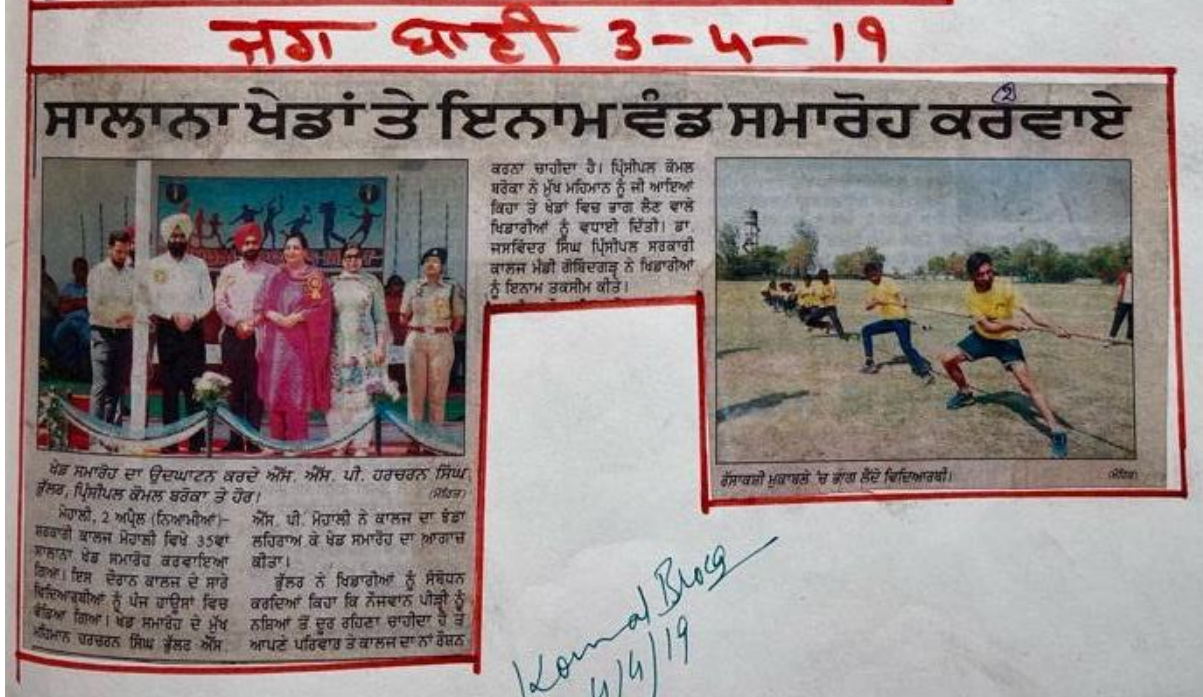 ਜਗ ਬਾਣੀ 3-4-19
ਸਾਲਾਨਾ ਖੇਡਾਂ ਤੇ ਇਨਾਮ ਵੰਡ ਸਮਾਰੋਹ ਕਰਵਾਏ
ਖੇਡ ਸਮਾਰੋਹ ਦਾ ਉਦਘਾਟਨ ਕਰਦੇ ਐੱਸ. ਐੱਸ. ਪੀ. ਹਰਚਰਨ ਸਿੰਘ
ਭੁੱਲਰ, ਪ੍ਰਿੰਸੀਪਲ ਕੋਮਲ ਬਰੋਕਾ ਤੇ ਹੋਰ।
ਮੋਹਾਲੀ, 2 ਅਪ੍ਰੈਲ (ਨਿਆਮੀਆਂ)-
ਸਰਕਾਰੀ ਕਾਲਜ ਮੋਹਾਲੀ ਵਿਖੇ 35ਵਾਂ
ਸਾਲਾਨਾ ਖੇਡ ਸਮਾਰੋਹ ਕਰਵਾਇਆ
ਗਿਆ। ਇਸ ਦੌਰਾਨ ਕਾਲਜ ਦੇ ਸਾਰੇ
ਵਿਦਿਆਰਥੀਆਂ ਨੂੰ ਪੰਜ ਹਾਊਸਾਂ ਵਿਚ
ਵੰਡਿਆ ਗਿਆ। ਖੇਡ ਸਮਾਰੋਹ ਦੇ ਮੁੱਖ
ਮਹਿਮਾਨ ਹਰਚਰਨ ਸਿੰਘ ਭੁੱਲਰ ਐੱਸ.
ਐੱਸ. ਪੀ. ਮੋਹਾਲੀ ਨੇ ਕਾਲਜ ਦਾ ਝੰਡਾ
ਲਹਿਰਾਅ ਕੇ ਖੇਡ ਸਮਾਰੋਹ ਦਾ ਆਗਾਜ਼
ਕੀਤਾ।
ਭੁੱਲਰ ਨੇ ਖਿਡਾਰੀਆਂ ਨੂੰ ਸੰਬੋਧਨ
ਕਰਦਿਆਂ ਕਿਹਾ ਕਿ ਨੌਜਵਾਨ ਪੀੜ੍ਹੀ ਨੂੰ
ਨਸ਼ਿਆਂ ਤੋਂ ਦੂਰ ਰਹਿਣਾ ਚਾਹੀਦਾ ਹੈ ਤੇ
ਆਪਣੇ ਪਰਿਵਾਰ ਤੇ ਕਾਲਜ ਦਾ ਨਾਂ ਰੌਸ਼ਨ
ਕਰਨਾ ਚਾਹੀਦਾ ਹੈ। ਪ੍ਰਿੰਸੀਪਲ ਕੋਮਲ
ਬਰੋਕਾ ਨੇ ਮੁੱਖ ਮਹਿਮਾਨ ਨੂੰ ਜੀ ਆਇਆਂ
ਕਿਹਾ ਤੇ ਖੇਡਾਂ ਵਿਚ ਭਾਗ ਲੈਣ ਵਾਲੇ
ਖਿਡਾਰੀਆਂ ਨੂੰ ਵਧਾਈ ਦਿੱਤੀ। ਡਾ.
ਜਸਵਿੰਦਰ ਸਿੰਘ ਪ੍ਰਿੰਸੀਪਲ ਸਰਕਾਰੀ
ਕਾਲਜ ਮੰਡੀ ਗੋਬਿੰਦਗੜ੍ਹ ਨੇ ਖਿਡਾਰੀਆਂ
ਨੂੰ ਇਨਾਮ ਤਕਸੀਮ ਕੀਤੇ।
ਰੱਸਾਕਸ਼ੀ ਮੁਕਾਬਲੇ 'ਚ ਭਾਗ ਲੈਂਦੇ ਵਿਦਿਆਰਥੀ।
Komal Broca
4/4/19